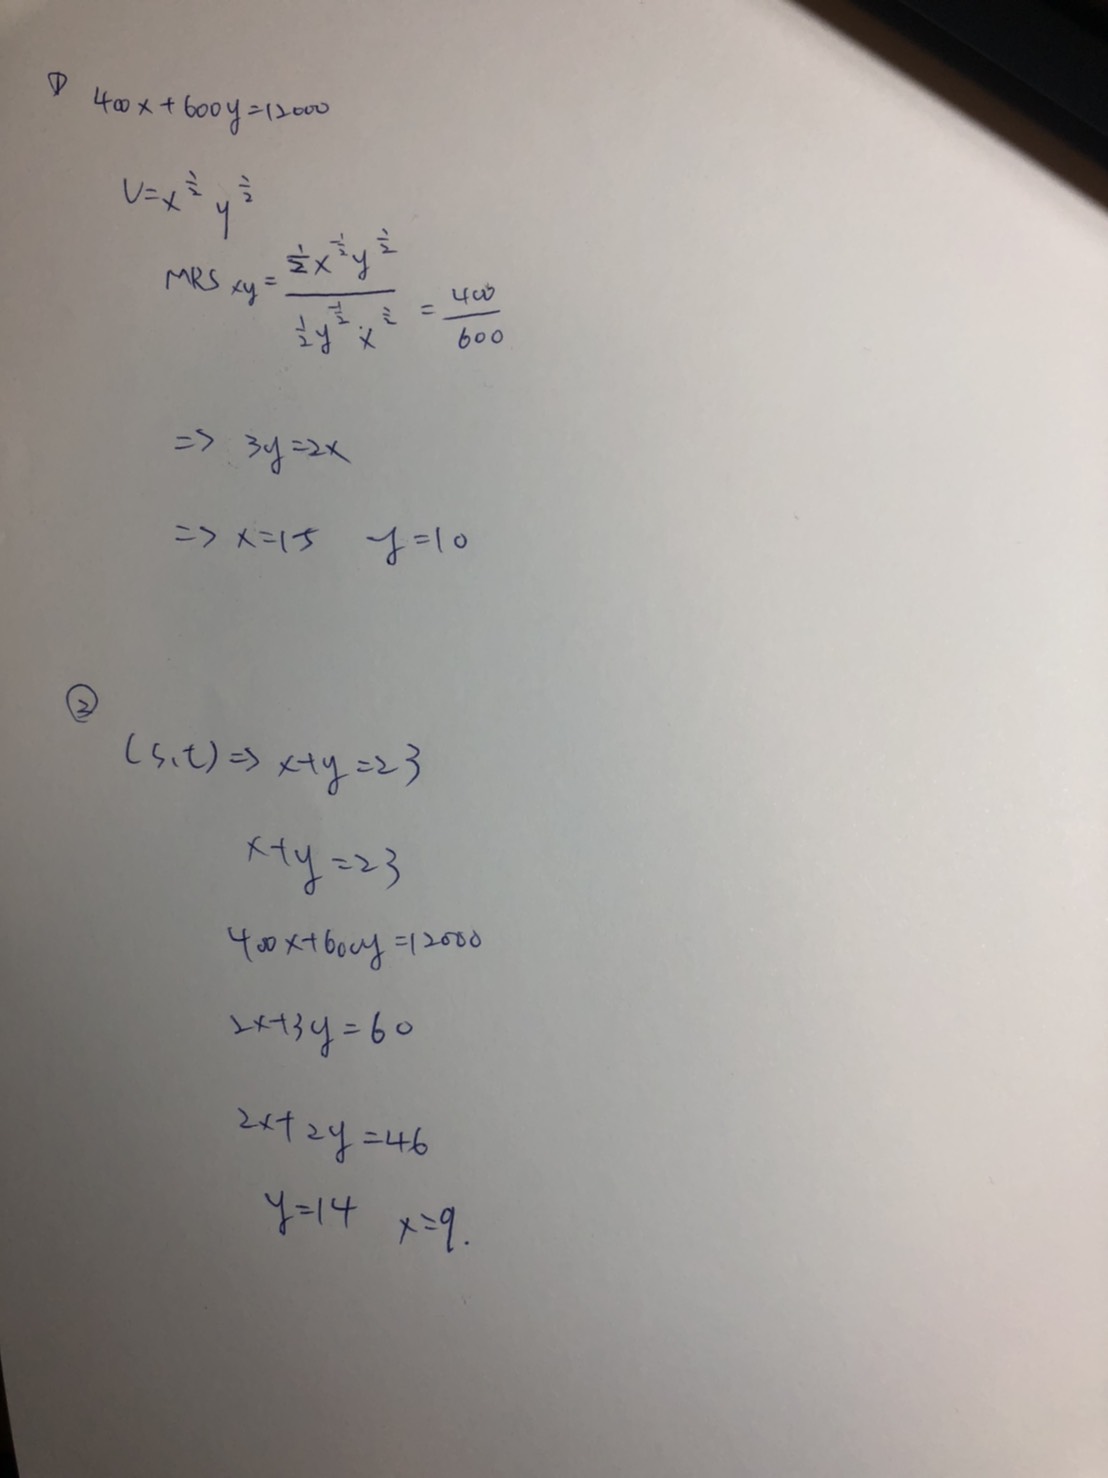 ① 400x+600y=12000
U=x^{1/2} y^{1/2}
MRS xy = \frac{\frac{1}{2}x^{-\frac{1}{2}}y^{\frac{1}{2}}}{\frac{1}{2}y^{-\frac{1}{2}}x^{\frac{1}{2}}} = \frac{400}{600}
=> 3y=2x
=> x=15 y=10
②
(s.t) => x+y=23
x+y=23
400x+600y=12000
2x+3y=60
2x+2y=46
y=14 x=9.